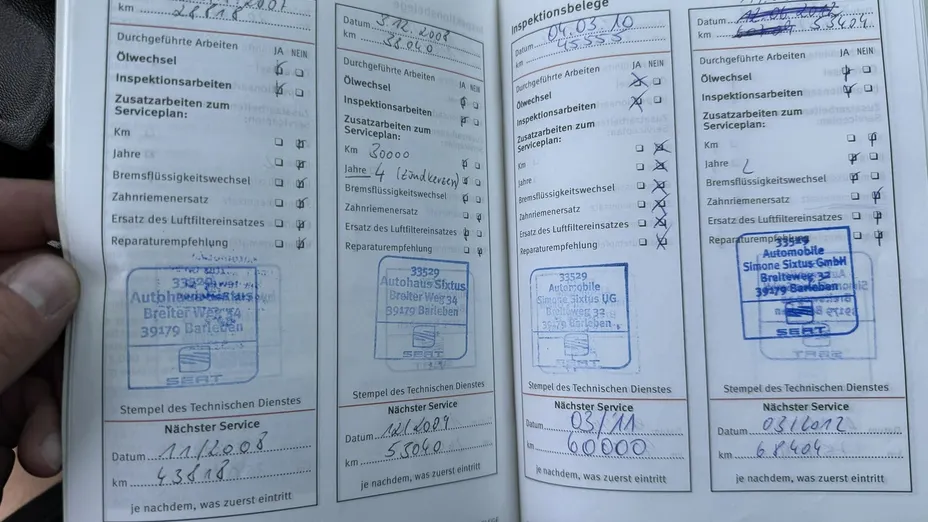 28818
Durchgeführte Arbeiten JA NEIN
Ölwechsel
Inspektionsarbeiten
Zusatzarbeiten zum
Serviceplan:
Km
Jahre
Bremsflüssigkeitswechsel
Zahnriemenersatz
Ersatz des Luftfiltereinsatzes
Reparaturempfehlung
33529
Autohaus Sixtus
Breiter Weg 34
39179 Barleben
SEAT
Stempel des Technischen Dienstes
Nächster Service
Datum 11/2008
km 43818
je nachdem, was zuerst eintritt
Datum 3.12.2008
km 38040
Durchgeführte Arbeiten JA NEIN
Ölwechsel
Inspektionsarbeiten
Zusatzarbeiten zum
Serviceplan:
Km 30000
Jahre 4 (Zündkerzen)
Bremsflüssigkeitswechsel
Zahnriemenersatz
Ersatz des Luftfiltereinsatzes
Reparaturempfehlung
33529
Autohaus Sixtus
Breiter Weg 34
39179 Barleben
SEAT
Stempel des Technischen Dienstes
Nächster Service
Datum 12/2009
km 53040
je nachdem, was zuerst eintritt
Inspektionsbelege
Datum 04.03.10
km 45555
Durchgeführte Arbeiten JA NEIN
Ölwechsel
Inspektionsarbeiten
Zusatzarbeiten zum
Serviceplan:
Km
Jahre
Bremsflüssigkeitswechsel
Zahnriemenersatz
Ersatz des Luftfiltereinsatzes
Reparaturempfehlung
33529
Automobile
Simone Sixtus UG
Breiteweg 32
39179 Barleben
SEAT
Stempel des Technischen Dienstes
Nächster Service
Datum 03/11
km 60000
je nachdem, was zuerst eintritt
Datum
km 53404
Durchgeführte Arbeiten JA NEIN
Ölwechsel
Inspektionsarbeiten
Zusatzarbeiten zum
Serviceplan:
Km
Jahre 2
Bremsflüssigkeitswechsel
Zahnriemenersatz
Ersatz des Luftfiltereinsatzes
Reparaturempfehlung
33529
Automobile
Simone Sixtus GmbH
Breiteweg 32
39179 Barleben
SEAT
Stempel des Technischen Dienstes
Nächster Service
Datum 03/2012
km 68404
je nachdem, was zuerst eintritt